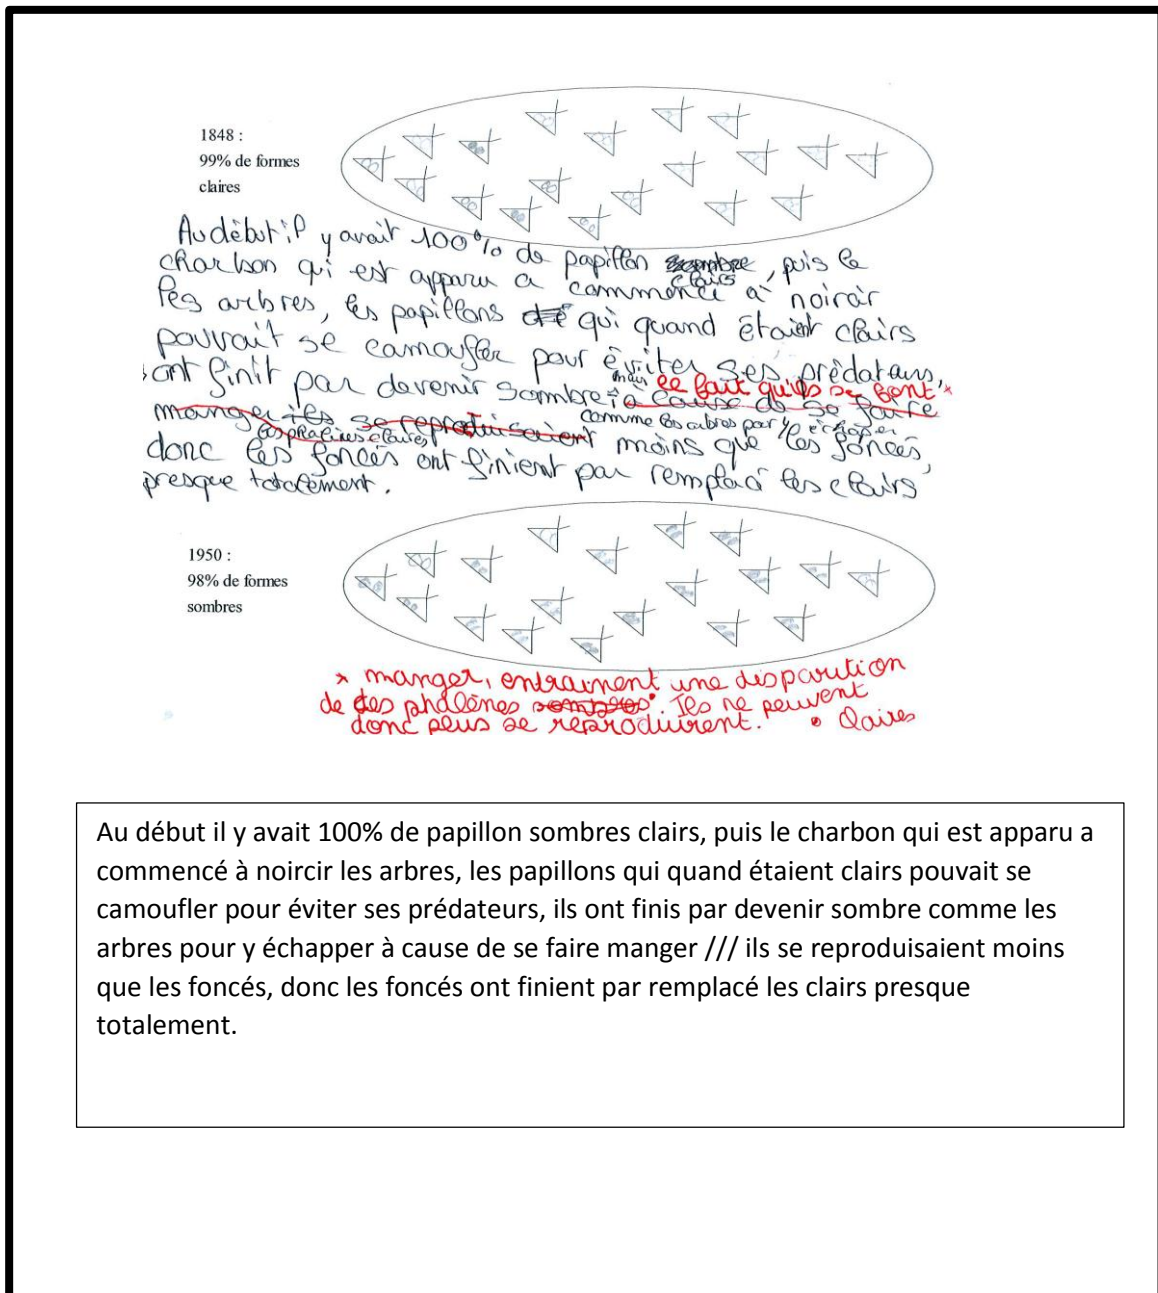 1848 :
99% de formes
claires
Au début il y avait 100% de papillon sombre clairs, puis le
charbon qui est apparu a commencé à noircir
les arbres, les papillons qui quand étaient clairs
pouvait se camoufler pour éviter ses prédateurs,
ont finit par devenir sombre mais le fait qu'ils se font *
à cause de se faire
manger ils se reproduisaient comme les arbres pour y échapper
les phalènes claires moins que les foncés,
donc les foncés ont finient par remplacé les clairs
presque totalement.
1950 :
98% de formes
sombres
* manger, entrainent une disparution
de des phalènes sombres •. Ils ne peuvent
donc plus se reproduirent. • claires
Au début il y avait 100% de papillon sombres clairs, puis le charbon qui est apparu a
commencé à noircir les arbres, les papillons qui quand étaient clairs pouvait se
camoufler pour éviter ses prédateurs, ils ont finis par devenir sombre comme les
arbres pour y échapper à cause de se faire manger /// ils se reproduisaient moins
que les foncés, donc les foncés ont finient par remplacé les clairs presque
totalement.